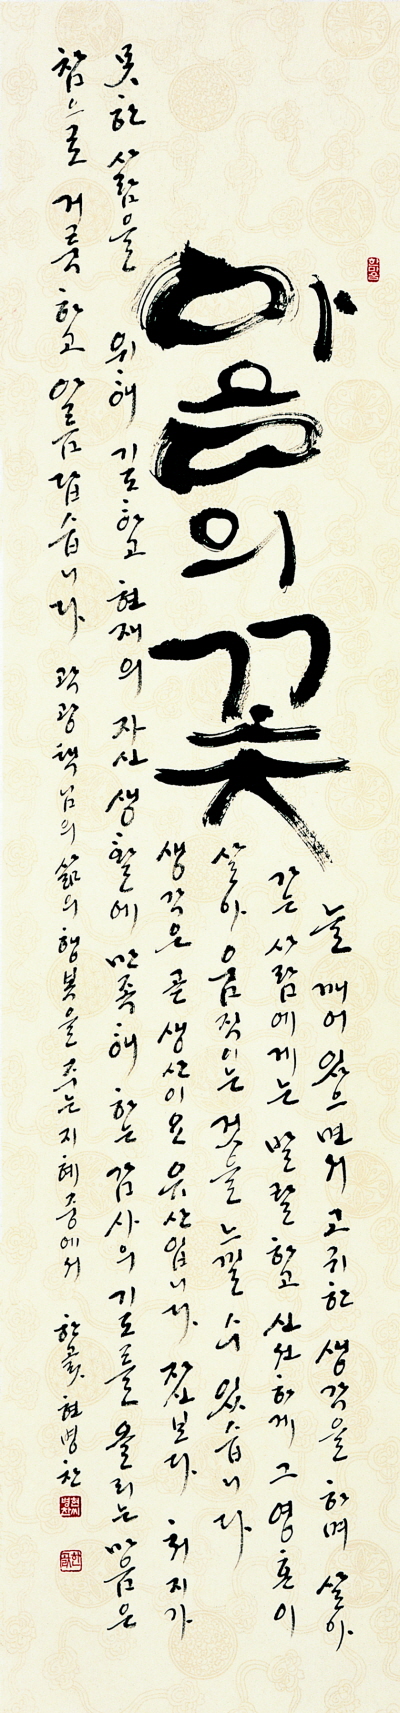 마음의 꽃
늘 깨어 있으면서 고귀한 생각을 하며 살아
가는 사람에게는 발랄하고 신선하게 그 영혼이
살아 움직이는 것을 느낄 수 있습니다
생각은 곧 생산이요 유산입니다. 자신보다 처지가
못한 사람을 위해 기도하고 현재의 자신 생활에 만족해 하는 감사의 기도를 올리는 마음은
참으로 거룩하고 아름답습니다 곽광택님의 삶의 행복을 주는 지혜중에서 한곬 현병찬